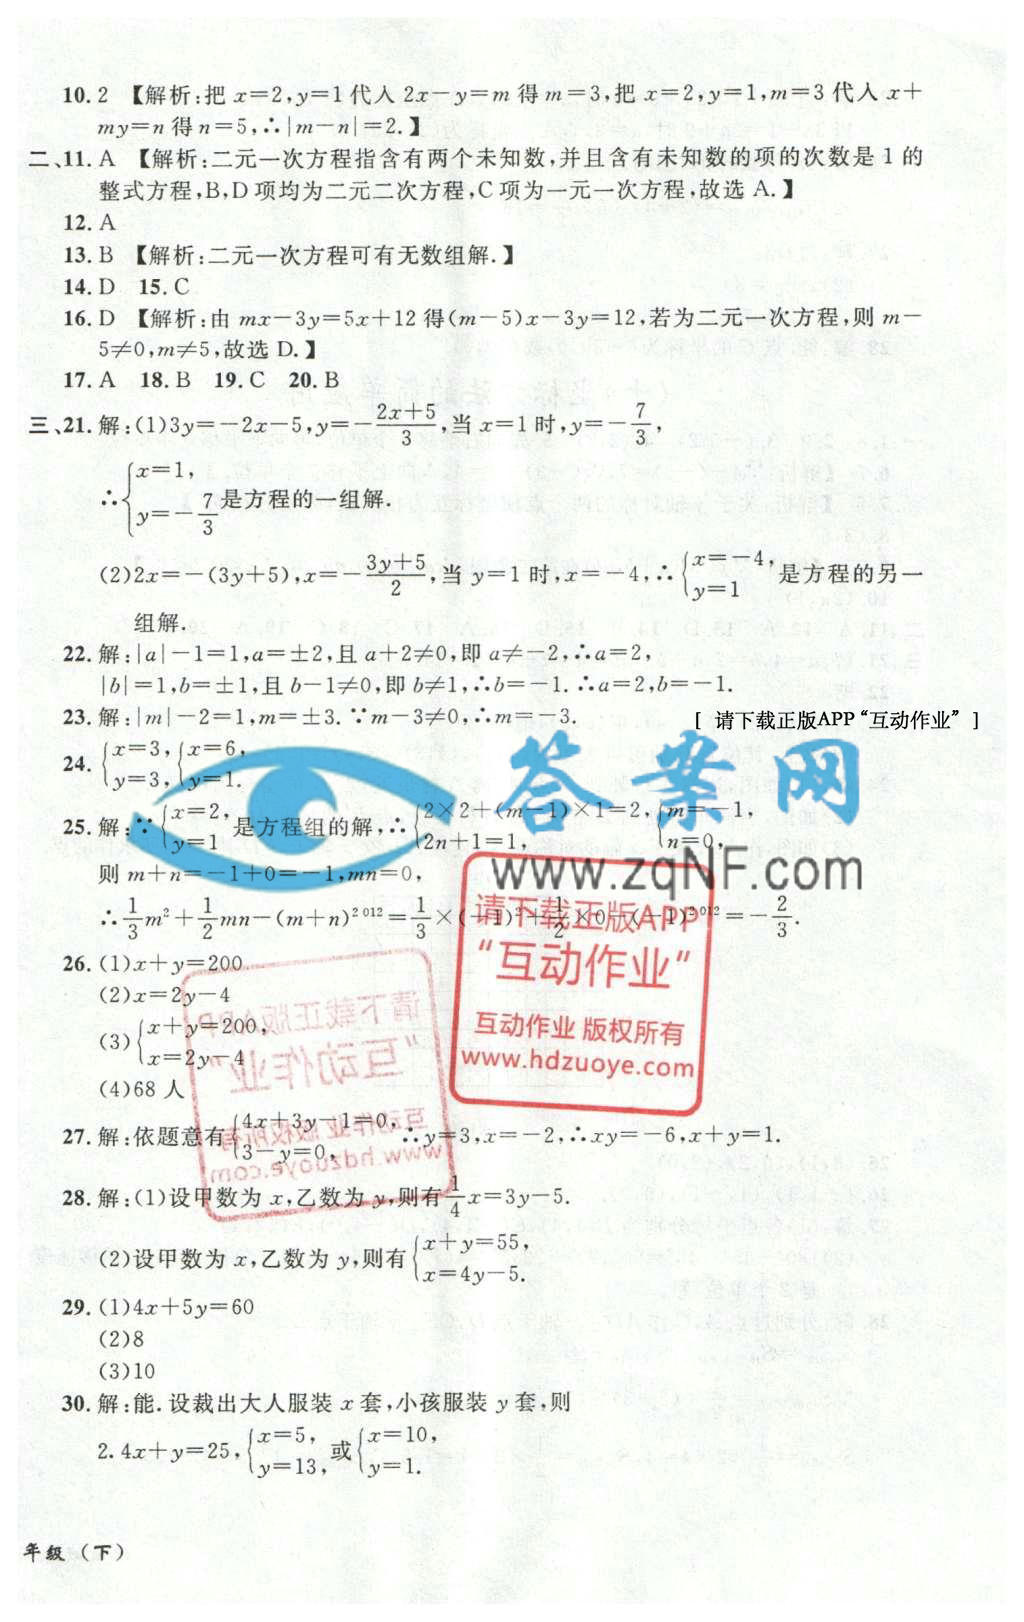 10. 2 【解析:把 x=2,y=1代入 2x-y=m 得 m=3,把 x=2,y=1,m=3 代入 x+
my=n 得 n=5,∴|m-n|=2.】
二、11. A 【解析:二元一次方程指含有两个未知数,并且含有未知数的项的次数是 1 的
整式方程,B,D 项均为二元二次方程,C 项为一元一次方程,故选 A.】
12. A
13. B 【解析:二元一次方程可有无数组解.】
14. D 15. C
16. D 【解析:由 mx-3y=5x+12 得(m-5)x-3y=12,若为二元一次方程,则 m-
5≠0,m≠5,故选 D.】
17. A 18. B 19. C 20. B
三、21. 解:(1)3y=-2x-5,y=-(2x+5)/3,当 x=1 时,y=-7/3,
∴{x=1, y=-7/3 是方程的一组解.
(2)2x=-(3y+5),x=-(3y+5)/2,当 y=1 时,x=-4,∴{x=-4, y=1 是方程的另一
组解.
22. 解:|a|-1=1,a=±2,且 a+2≠0,即 a≠-2,∴a=2,
|b|=1,b=±1,且 b-1≠0,即 b≠1,∴b=-1.∴a=2,b=-1.
23. 解:|m|-2=1,m=±3.∵m-3≠0,∴m=-3.
[ 请下载正版APP“互动作业” ]
24. {x=3, y=3, {x=6, y=1.
答案网
25. 解:∵{x=2, y=1 是方程组的解,∴{2×2+(m-1)×1=2, 2n+1=1, {m=-1, n=0,
www.zqNF.com
则 m+n=-1+0=-1,mn=0,
∴1/3m²+1/2mn-(m+n)²⁰¹²=1/3×(-1)²+1/2×0-(-1)²⁰¹²=-2/3.
请下载正版APP
“互动作业”
互动作业 版权所有
www.hdzuoye.com
26. (1)x+y=200
(2)x=2y-4
(3){x+y=200, x=2y-4
(4)68 人
请下载正版APP
“互动作业”
互动作业 版权所有
www.hdzuoye.com
27. 解:依题意有{4x+3y-1=0, 3-y=0, ∴y=3,x=-2,∴xy=-6,x+y=1.
28. 解:(1)设甲数为 x,乙数为 y,则有1/4x=3y-5.
(2)设甲数为 x,乙数为 y,则有{x+y=55, x=4y-5.
29. (1)4x+5y=60
(2)8
(3)10
30. 解:能.设裁出大人服装 x 套,小孩服装 y 套,则
2.4x+y=25,{x=5, y=13, 或{x=10, y=1.
年级(下)